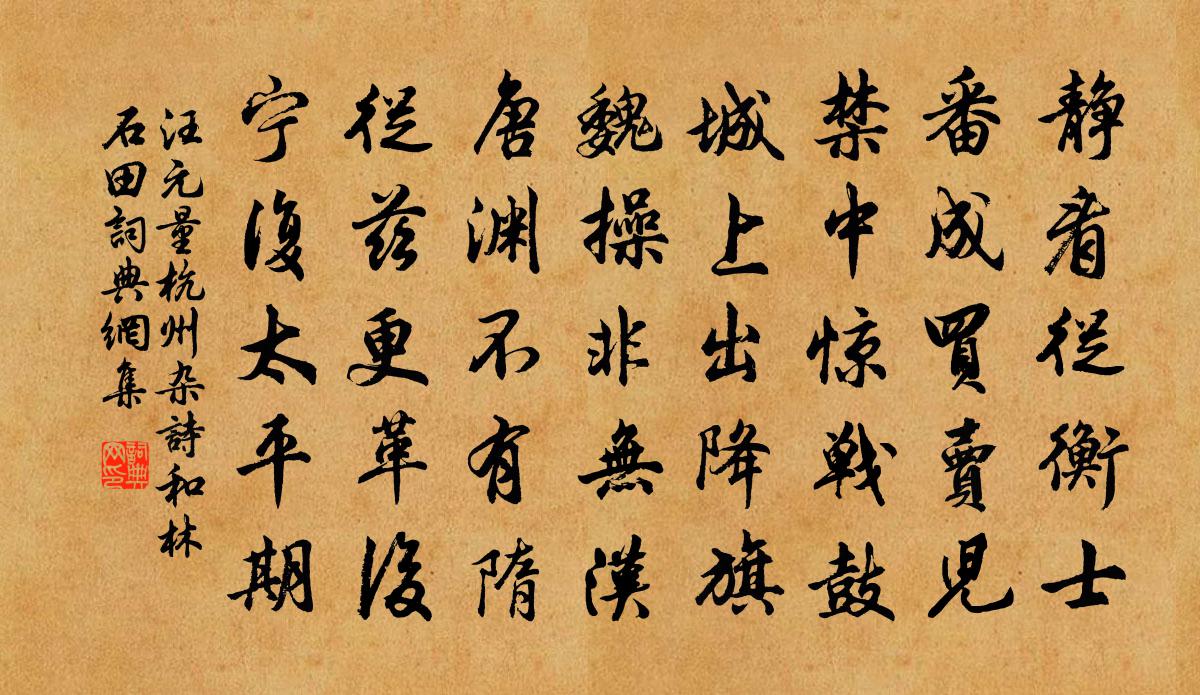 静看從衡士
番成買賣児
禁中惊戰鼓
城上出降旗
魏操非無漢
唐渊不有隋
從茲更革後
宁復太平期
汪元量杭州杂詩和林
石田詞典網集
詞典网印